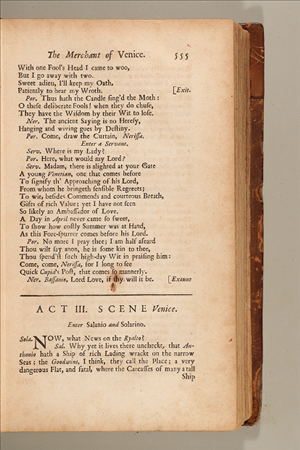 The Merchant of Venice. 555
With one Fool's Head I came to woo,
But I go away with two.
Sweet adieu, I'll keep my Oath,
Patiently to bear my Wroth. [Exit.
Por. Thus hath the Candle sing'd the Moth:
O these deliberate Fools! when they do chuse,
They have the Wisdom by their Wit to lose.
Ner. The ancient Saying is no Heresy,
Hanging and wiving goes by Destiny.
Por. Come, draw the Curtain, Nerissa.
Enter a Servant.
Serv. Where is my Lady?
Por. Here, what would my Lord?
Serv. Madam, there is alighted at your Gate
A young Venetian, one that comes before
To signify th' Approaching of his Lord,
From whom he bringeth sensible Regreets;
To wit, besides Commends and courteous Breath,
Gifts of rich Value; yet I have not seen
So likely an Ambassador of Love.
A Day in April never came so sweet,
To show how costly Summer was at Hand,
As this Fore-spurrer comes before his Lord.
Por. No more I pray thee; I am half afeard
Thou wilt say anon, he is some kin to thee,
Thou spend'st such high-day Wit in praising him:
Come, come, Nerissa, for I long to see
Quick Cupid's Post, that comes so mannerly.
Ner. Bassanio, Lord Love, if thy will it be. [Exeunt
ACT III. SCENE Venice.
Enter Salanio and Solarino.
Sola. NOW, what News on the Ryalto?
Sal. Why yet it lives there uncheckt, that An-
thonio hath a Ship of rich Lading wrackt on the narrow
Seas; the Goodwins, I think, they call the Place; a very
dangerous Flat, and fatal, where the Carcasses of many a tall
Ship